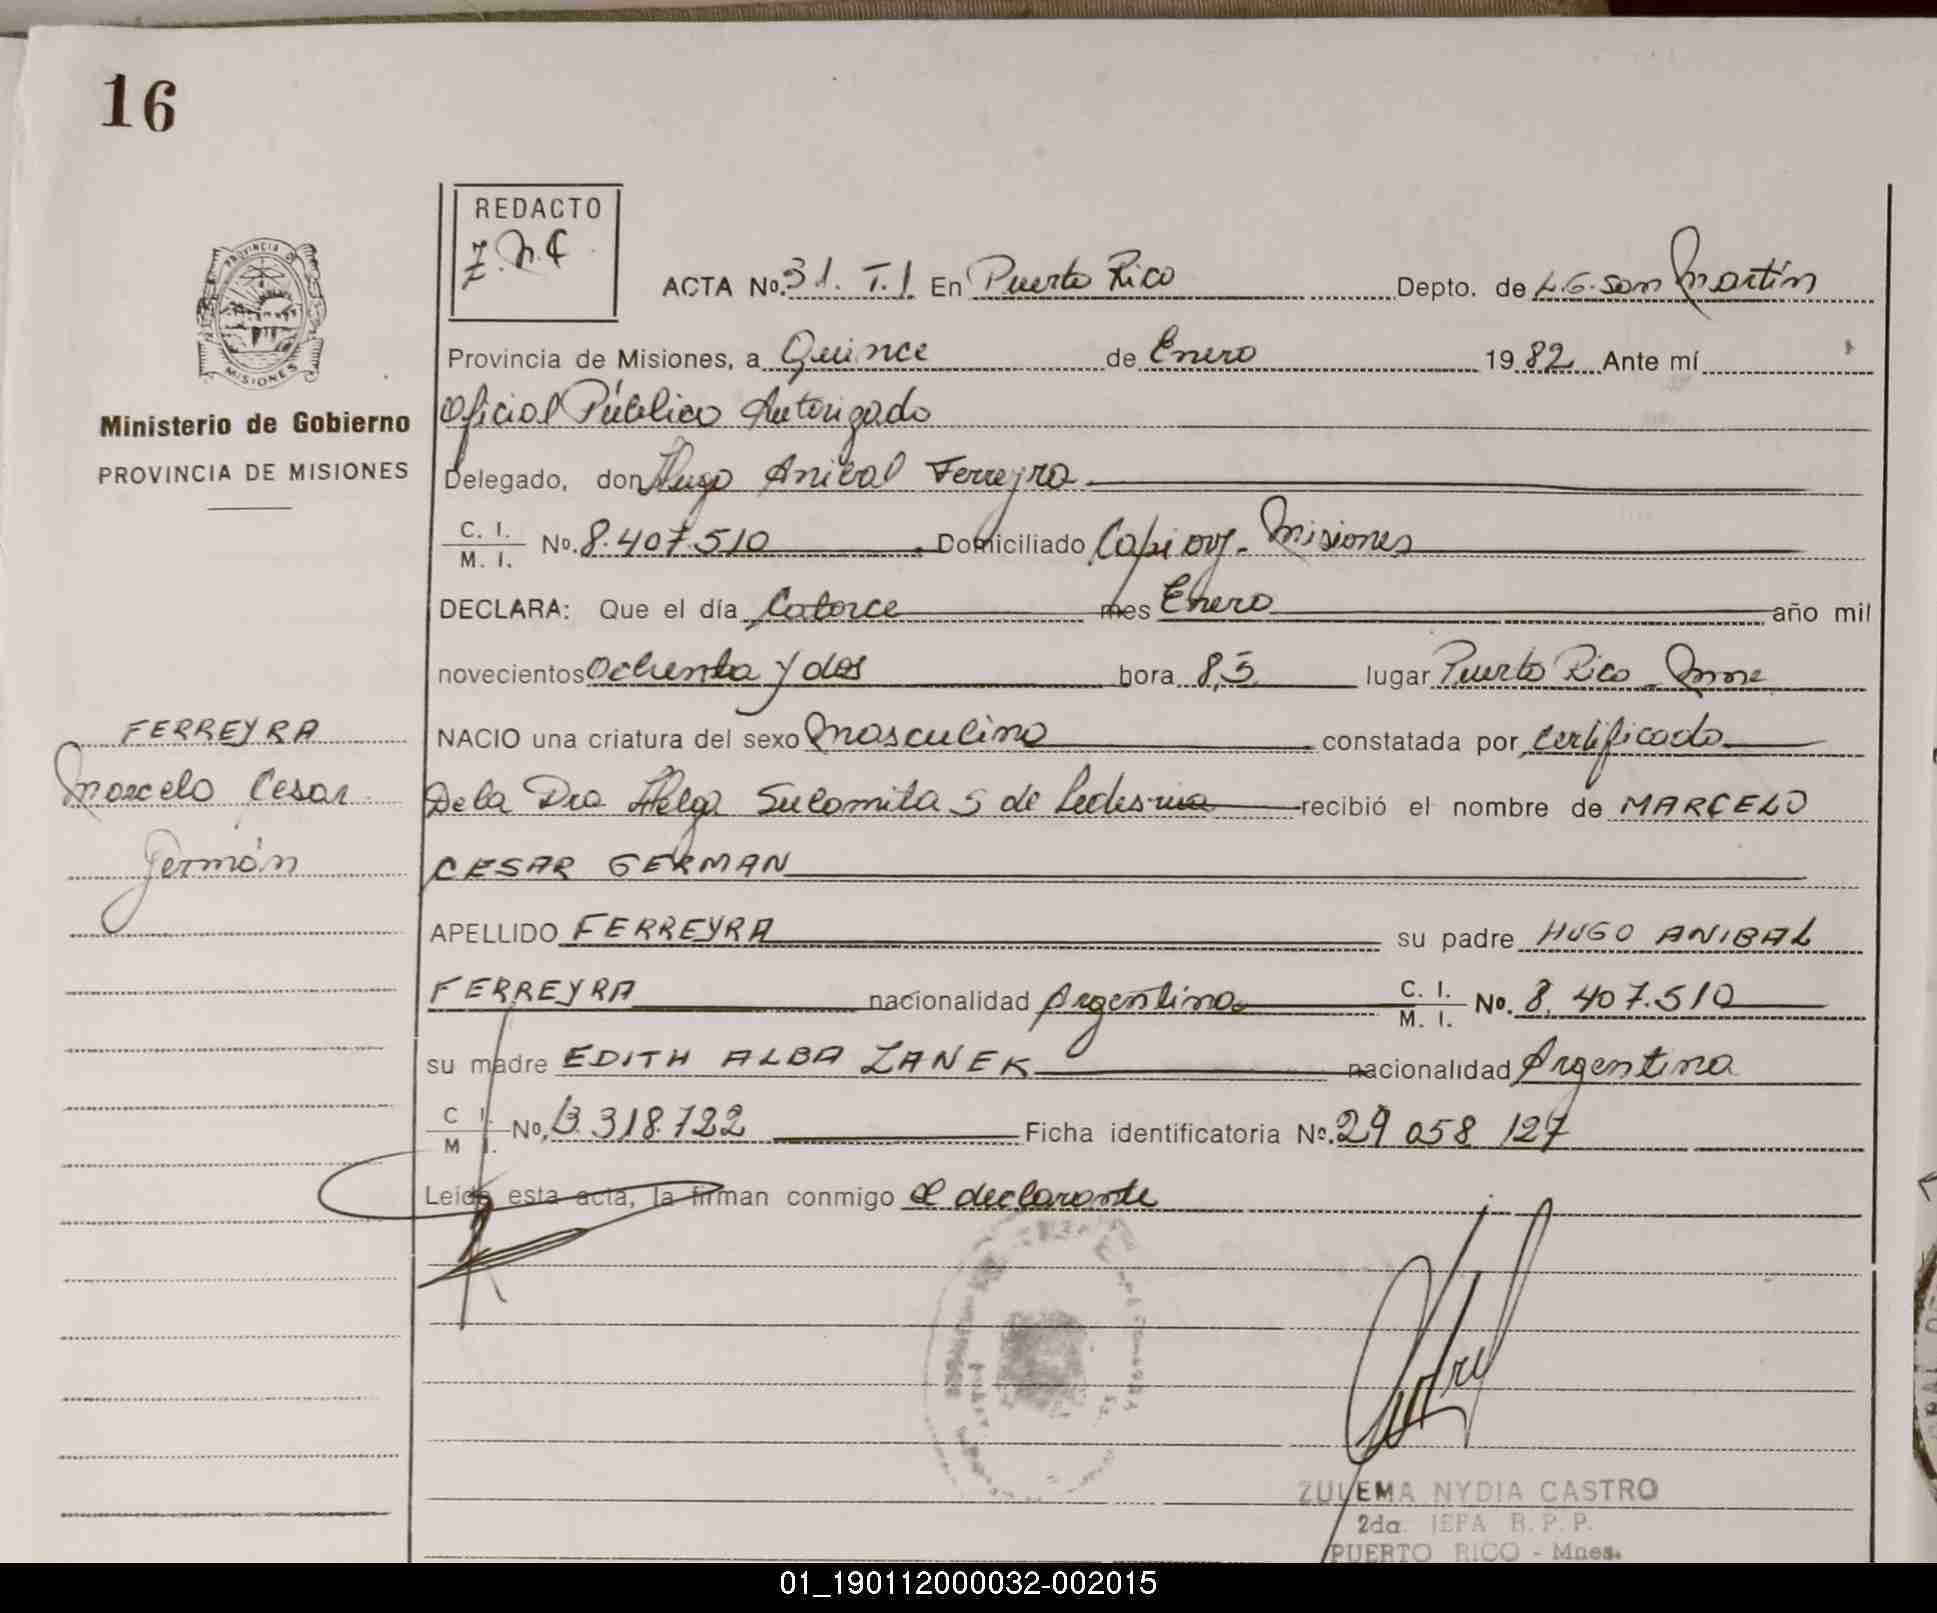 16
PROVINCIA DE
MISIONES
Ministerio de Gobierno
PROVINCIA DE MISIONES
FERREYRA
Marcelo Cesar
Germán
REDACTO
Z.N.C.
ACTA No. 31. T.I. En Puerto Rico Depto. de L.G. San Martín
Provincia de Misiones, a Quince de Enero 1982 Ante mí
Oficial Público Autorizado
Delegado, don Hugo Anibal Ferreyra
C. I. M. I. No. 8.407.510 Domiciliado Capiovy. Misiones
DECLARA: Que el día Catorce mes Enero año mil
novecientos Ochenta y dos hora 8,5 lugar Puerto Rico
NACIO una criatura del sexo Masculino constatada por certificado
De la Dra Helga Sulamita S de Ledesma recibió el nombre de MARCELO
CESAR GERMAN
APELLIDO FERREYRA su padre HUGO ANIBAL
FERREYRA nacionalidad Argentina C. I. M. I. No. 8.407.510
su madre EDITH ALBA ZANEK nacionalidad Argentina
C I. M I. No. 13.318.722 Ficha identificatoria No. 29 058 127
Leída esta acta, la firman conmigo el declarante
ZULEMA NYDIA CASTRO
2da. JEFA R.P.P.
PUERTO RICO - Mnes.
01_190112000032-002015